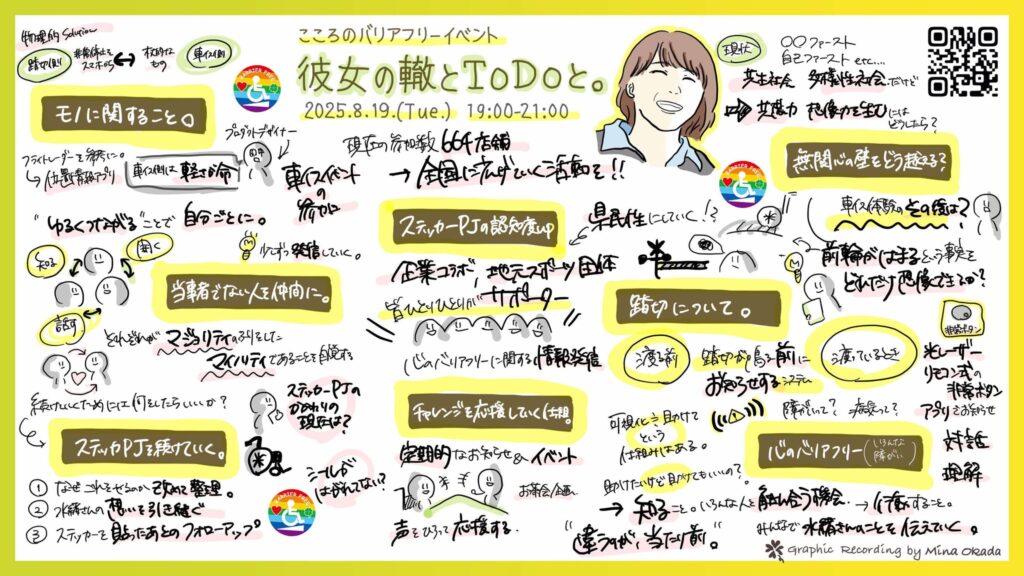 物理的 Solution
踏切側
非常停止を
スマホから
根本的な
もの
車イス側
モノに関すること。
プロダクトデザイナー
フライトレーダーを参考に。
→位置情報アプリ
車イス側は軽さが命
"ゆるくつながる"ことで 自分ごとに。
知る
聞く
話す
少しずつ発信していく。
当事者でない人を仲間に。
それぞれが マジョリティのふりをした
マイノリティであることを自覚する
続けていくためには何をしたらいいか?
ステッカーPJを続けていく。
① なぜこれをやるのか 改めて整理。
② 水嶋さんの 想いを引き継ぐ
③ ステッカーを貼ったあとのフォローアップ
BARRIER FREE
こころのバリアフリーイベント
彼女の轍とToDoと。
2025.8.19.(Tue.) 19:00-21:00
現在の参加数 664店舗
→ 全国に広げていく活動を!!
車イスイベント
の
参加
ステッカーPJの認知度up
県民性にしていく!?
企業コラボ、地元スポーツ団体
皆ひとりひとりが サポーター
心のバリアフリーに関する情報発信
ステッカーPJの
かかわりの
現在は?
シールが
はがれてない?
BARRIER FREE
チャレンジを応援していく仕組
定期的なお知らせ&イベント
お茶会企画
声をひろって応援する。
現状
〇〇ファースト
自己ファースト etc...
共生社会 多様性社会だけど
⇒ 共感力 想像力を生むには
どうしたら?
BARRIER FREE
無関心の壁をどう越える?
車イス体験のその後は?
前輪がはまるという事を
どれだけ想像できるか?
踏切について。
渡る前
踏切が鳴る前に
お知らせするシステム
渡っているとき
非常ボタン
光レーザー
リモコン式の
非常ボタン
アプリでお知らせ
可視化≒助けて
という
仕組みはある。
障がいって? 病気って?
心のバリアフリー(いろんな障がい)
対話
理解
助けたいけど助けてもいいの?
→ 知ること。いろんな人と 触れ合う機会。→ 行動すること。
みんなで 水嶋さんのことを 伝えていく。
"違うのが、当たり前"。
Graphic Recording by Mina Okada